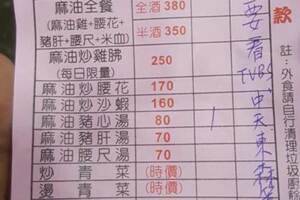 麻油全餐 全酒 380
(麻油雞+腰花+ 半酒 350
豬肝+腰尺+米血)
麻油炒雞胇 250
(每日限量)
麻油炒腰花 170
麻油炒沙蝦 160
麻油豬心湯 80 1
麻油豬肝湯 70
麻油腰尺湯 70
炒青菜 (時價)
燙青菜 (時價)
要看TVBS
中天東森
款
註:外食請自行清理垃圾廚餘